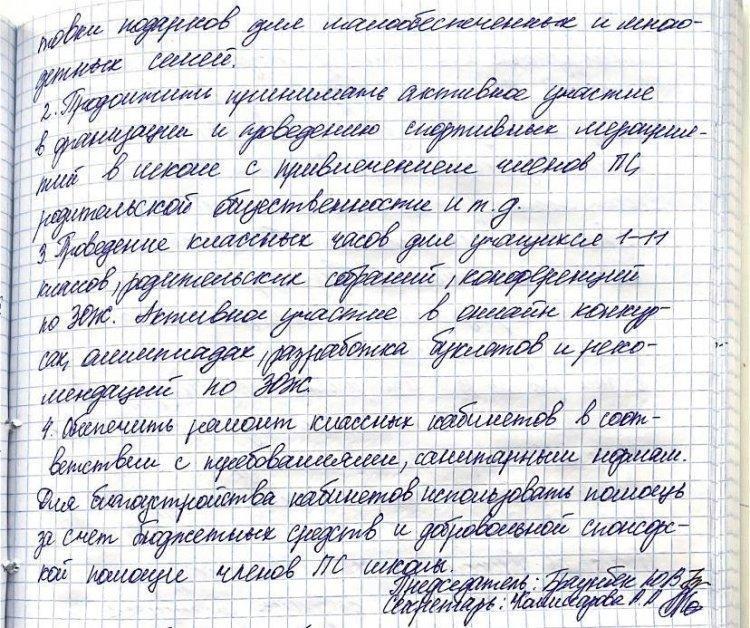 товки подарков для малообеспеченных и много-
детных семей.
2. Продолжить принимать активное участие
в организации и проведению спортивных мероприя-
тий в школе с привлечением членов ПС,
родительской общественности и т.д.
3. Проведение классных часов для учащихся 1-11
классов, родительских собраний, конференций
по ЗОЖ. Активное участие в онлайн конкур-
сах, олимпиадах, разработка буклетов и реко-
мендаций по ЗОЖ.
4. Обеспечить ремонт классных кабинетов в соот-
ветствии с требованиями, санитарным нормам.
Для благоустройства кабинетов использовать помощь
за счет бюджетных средств и добровольной спонсорс-
кой помощи членов ПС школы.
Председатель: Ю.В.
Секретарь: